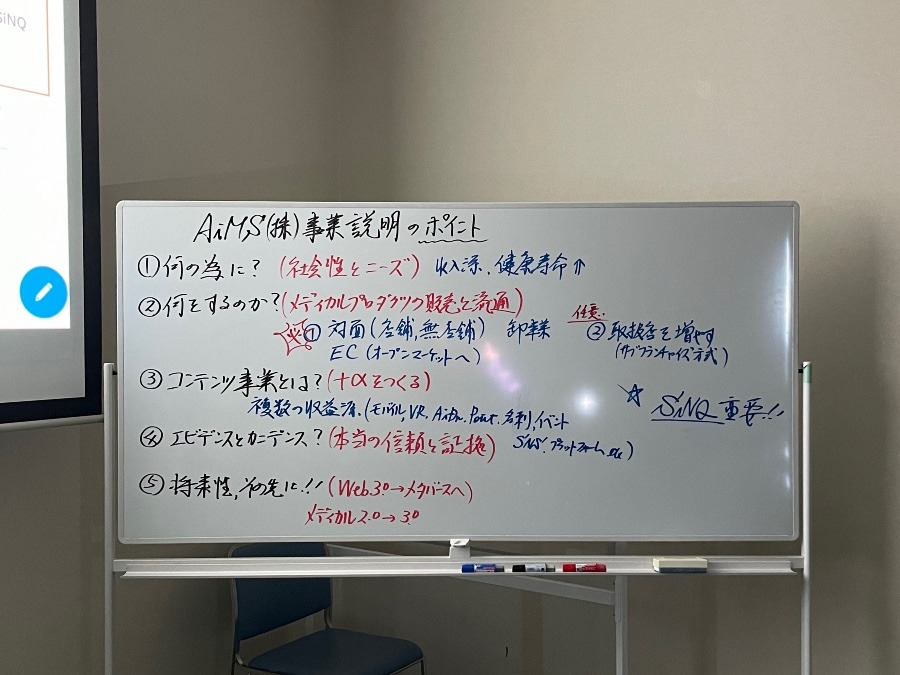 SiNQ
AiMS(株)事業説明のポイント
①何の為に? (社会性とニーズ) 収入源、健康寿命↑
②何をするのか?(メディカルプロダクツの販売と流通)
① 対面(店舗,無店舗) 卸事業
EC(オープンマーケットへ)
任意
②取扱店を増やす
(サブフランチャイズ方式)
③コンテンツ事業とは?(+αをつくる)
複数の収益源、(モバイル,VR, Point, 名刺,イベント
SNS、プラットフォーム etc)
☆ SiNQ重要!!
④エビデンスとカニデンス?(本当の信頼と証拠)
⑤将来性,その先に!!(Web3.0→メタバースへ)
メディカル2.0→3.0